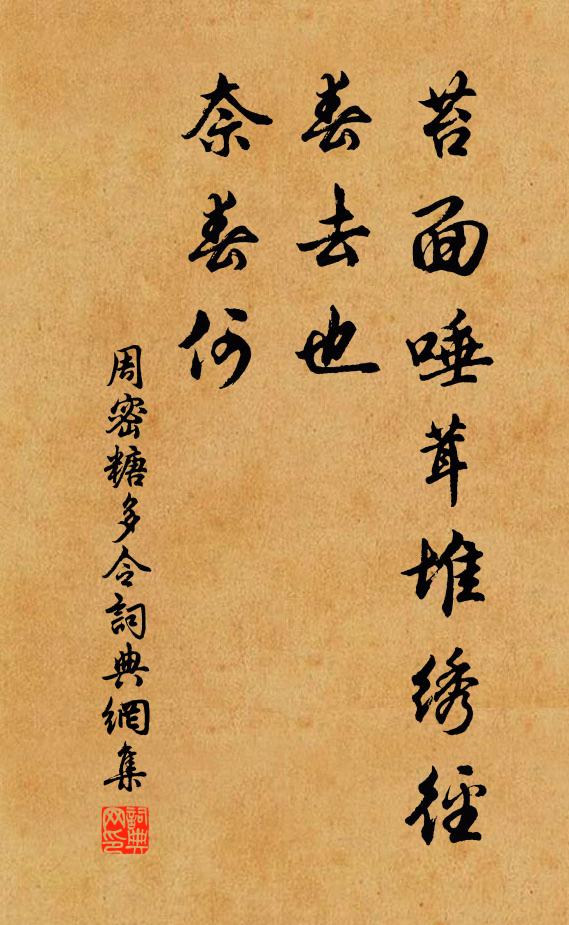 苔面唾茸堆绣径
春去也
奈春何
周密糖多令詞典網集
詞典网印